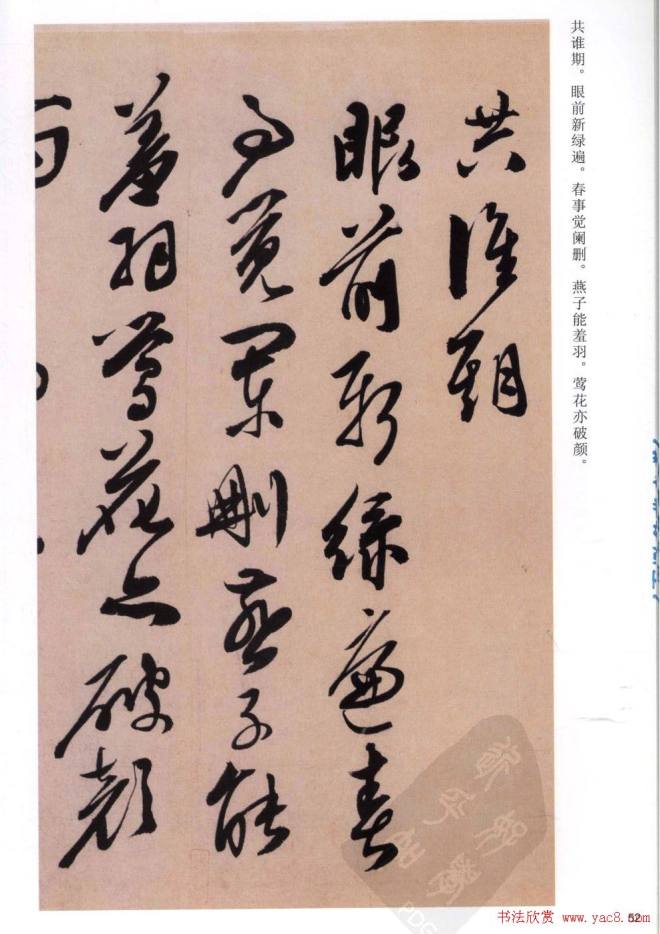 共谁期。眼前新绿遍。春事觉阑删。燕子能羞羽。莺花亦破颜。
共谁期
眼前新绿遍春
事觉阑删燕子能
羞羽莺花亦破颜
PDG
52
书法欣赏 www.yac8.com